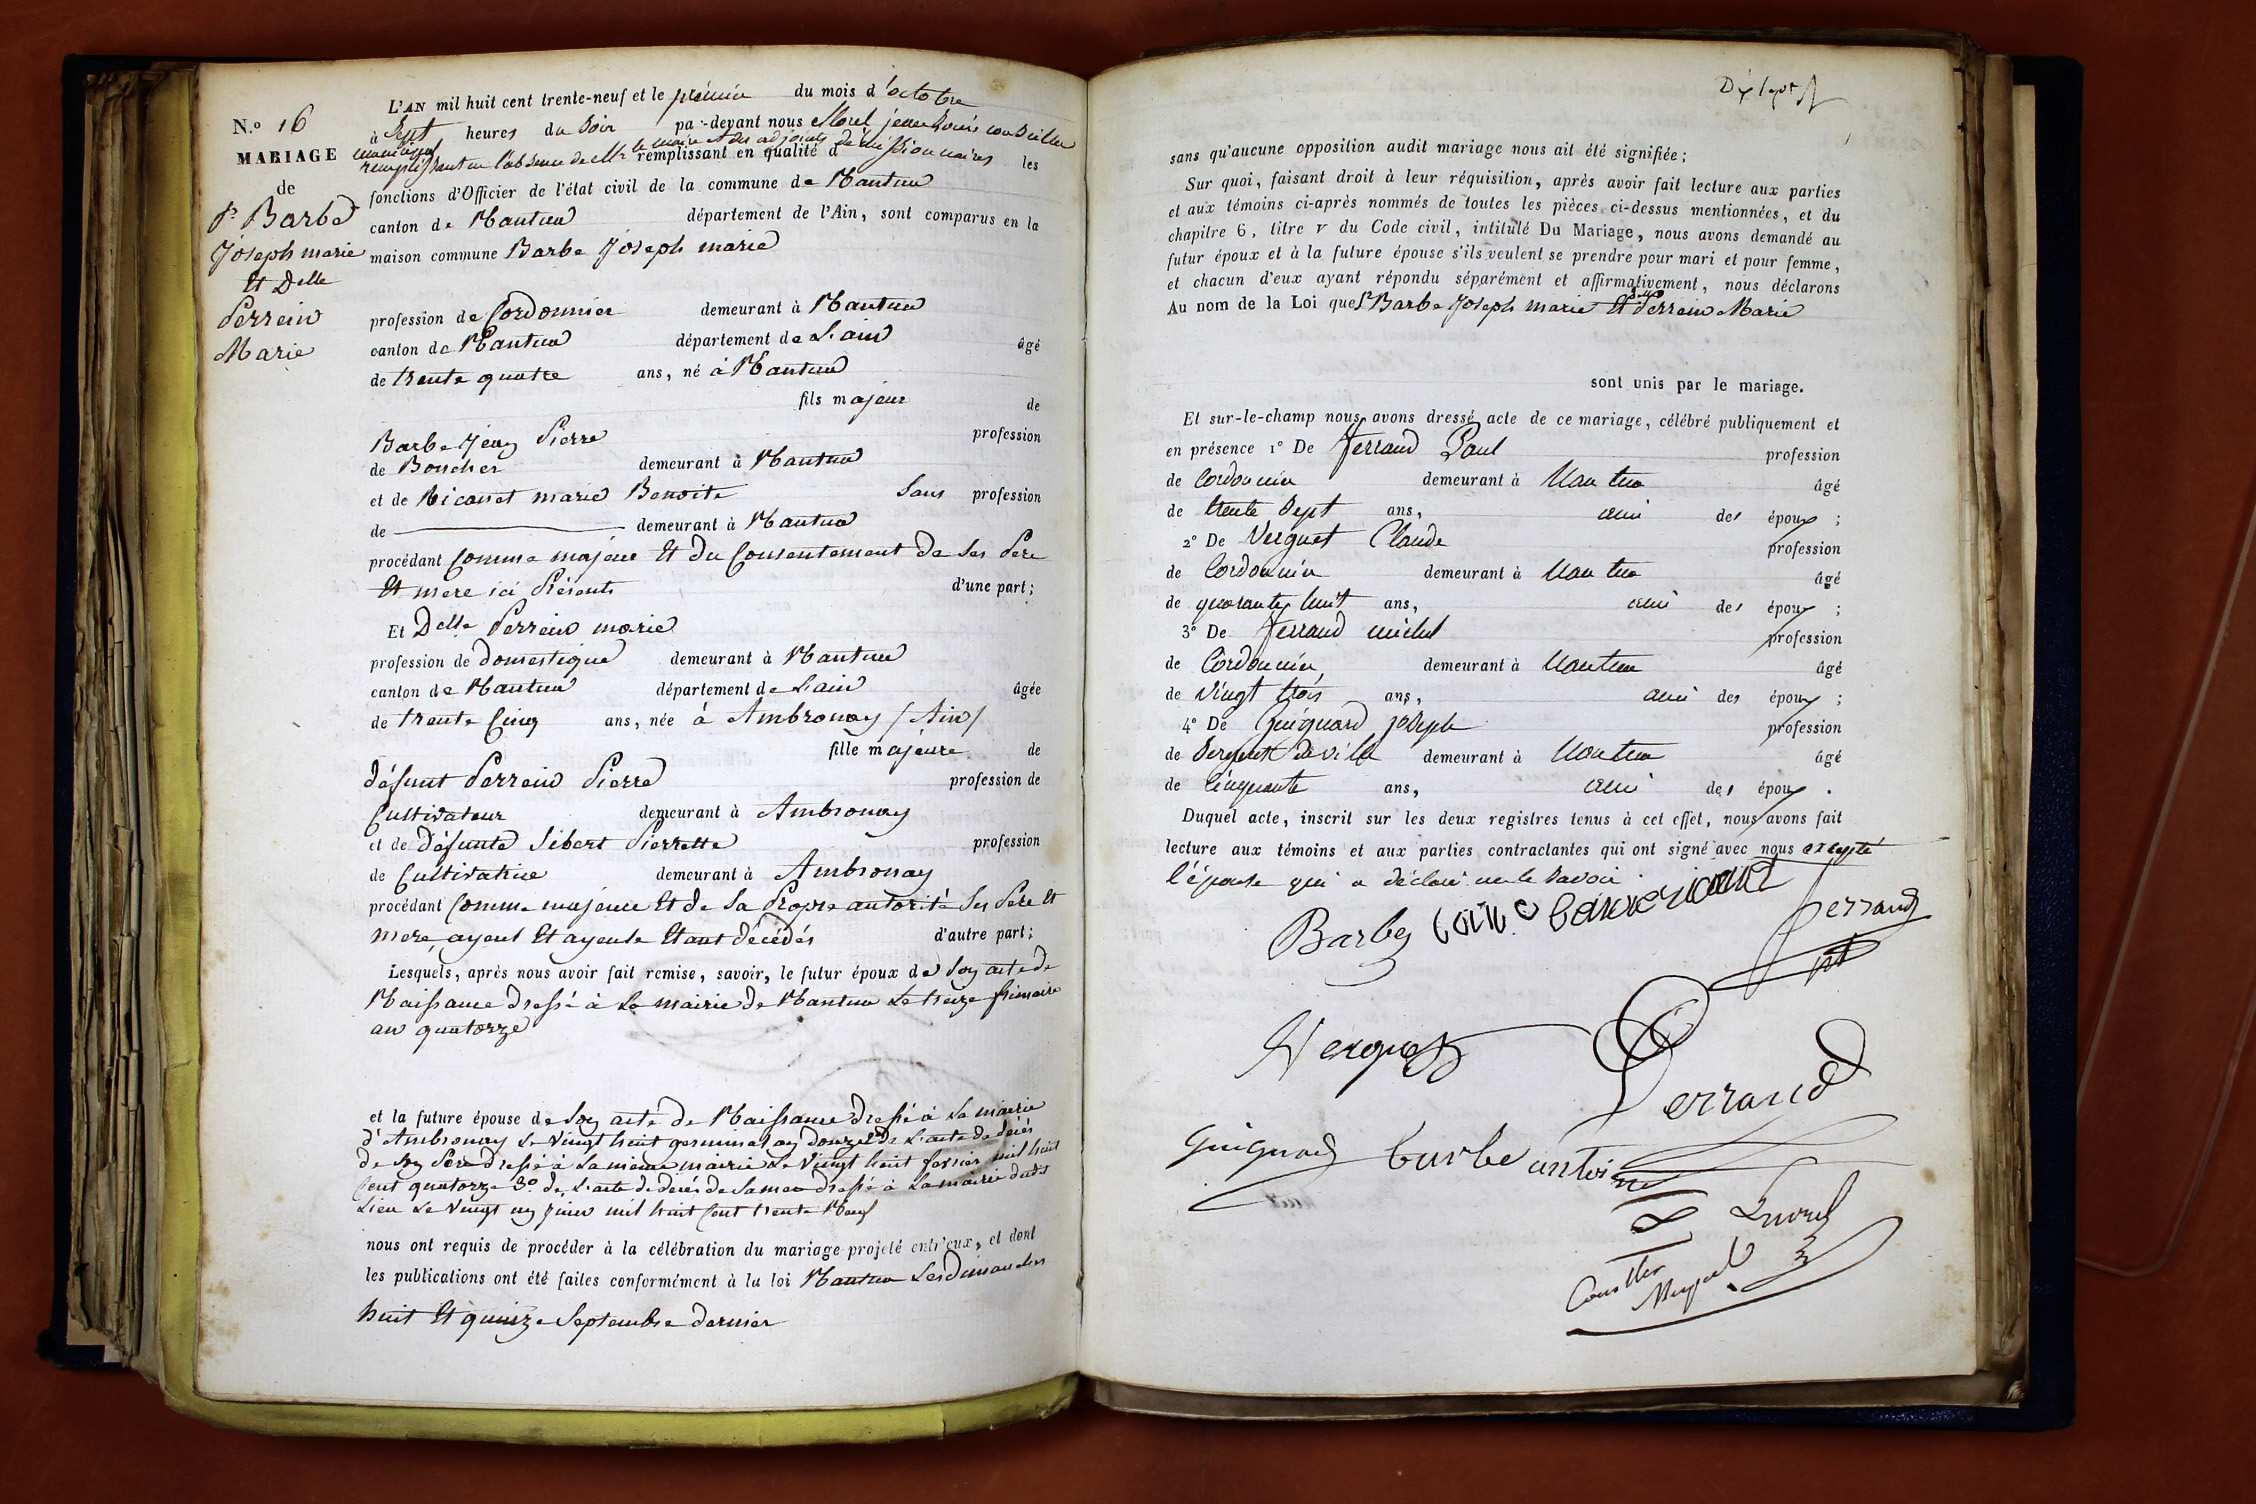 N.º 16
MARIAGE
de
Sr Barbe
Joseph marie
Et Delle
Perrein
Marie
L'AN mil huit cent trente-neuf et le premier du mois d'octobre
à Sept heures du Soir par-devant nous Morel jean Louis conseiller
municipal remplissant en l'absence de Mr le maire et des adjoints démissionnaires
remplissant en qualité d les
fonctions d'Officier de l'état civil de la commune de Nantua
canton de Nantua département de l'Ain, sont comparus en la
maison commune Barbe Joseph marie
profession de Cordonnier demeurant à Nantua
canton de Nantua département de L'ain âgé
de trente quatre ans, né à Nantua
fils majeur de
Barbe Jean Pierre profession
de Boucher demeurant à Nantua
et de marie Benoite Sans profession
de demeurant à Nantua
procédant Comme majeur Et du Consentement de Ses Pere
Et mere ici Présents d'une part;
Et Delle Perrein marie
profession de domestique demeurant à Nantua
canton de Nantua département de L'ain âgée
de trente Cinq ans, née à Ambronay (Ain)
fille majeure de
défunt Perrein Pierre profession de
Cultivateur demeurant à Ambronay
et de défunte Sibert Pierrette profession
de Cultivatrice demeurant à Ambronay
procédant Comme majeure Et de Sa Propre autorité Ses Pere Et
mere, ayeul Et ayeule Etant décédés d'autre part;
Lesquels, après nous avoir fait remise, savoir, le futur époux de Son acte de
Naissance dressé à La mairie de Nantua Le treize frimaire
an quatorze
et la future épouse de Son acte de Naissance dressé à La mairie
d'Ambronay Le Vingt huit germinal an douze 2º de L'acte de décès
de Son Pere dressé à La même mairie Le Vingt huit fevrier mil huit
Cent quatorze 3º de L'acte de décès de Sa mere dressé à La mairie dudit
Lieu Le Vingt un mil huit Cent trente Neuf
nous ont requis de procéder à la célébration du mariage projeté entr'eux, et dont
les publications ont été faites conformément à la loi Nantua Les Dimanches
huit Et quinze Septembre dernier
sans qu'aucune opposition audit mariage nous ait été signifiée;
Sur quoi, faisant droit à leur réquisition, après avoir fait lecture aux parties
et aux témoins ci-après nommés de toutes les pièces ci-dessus mentionnées, et du
chapitre 6, titre v du Code civil, intitulé Du Mariage, nous avons demandé au
futur époux et à la future épouse s'ils veulent se prendre pour mari et pour femme,
et chacun d'eux ayant répondu séparément et affirmativement, nous déclarons
Au nom de la Loi que Sr Barbe Joseph marie Et Dlle Perrein Marie
sont unis par le mariage.
Et sur-le-champ nous avons dressé acte de ce mariage, célébré publiquement et
en présence 1º De Ferraud Paul profession
de Cordonnier demeurant à Nantua âgé
de trente Sept ans, ami des époux ;
2º De Verguet Claude profession
de Cordonnier demeurant à Nantua âgé
de quarante huit ans, ami des époux ;
3º De Ferraud michel profession
de Cordonnier demeurant à Nantua âgé
de Vingt trois ans, ami des époux ;
4º De Guignard joseph profession
de Sergent de ville demeurant à Nantua âgé
de Cinquante ans, ami des époux .
Duquel acte, inscrit sur les deux registres tenus à cet effet, nous avons fait
lecture aux témoins et aux parties contractantes qui ont signé avec nous excepté
l'épouse qui a déclaré ne le savoir
Barbe
Ferraud
Verguet
Ferraud
Guignard Barbe antoine
Morel
Conseiller
Mupal